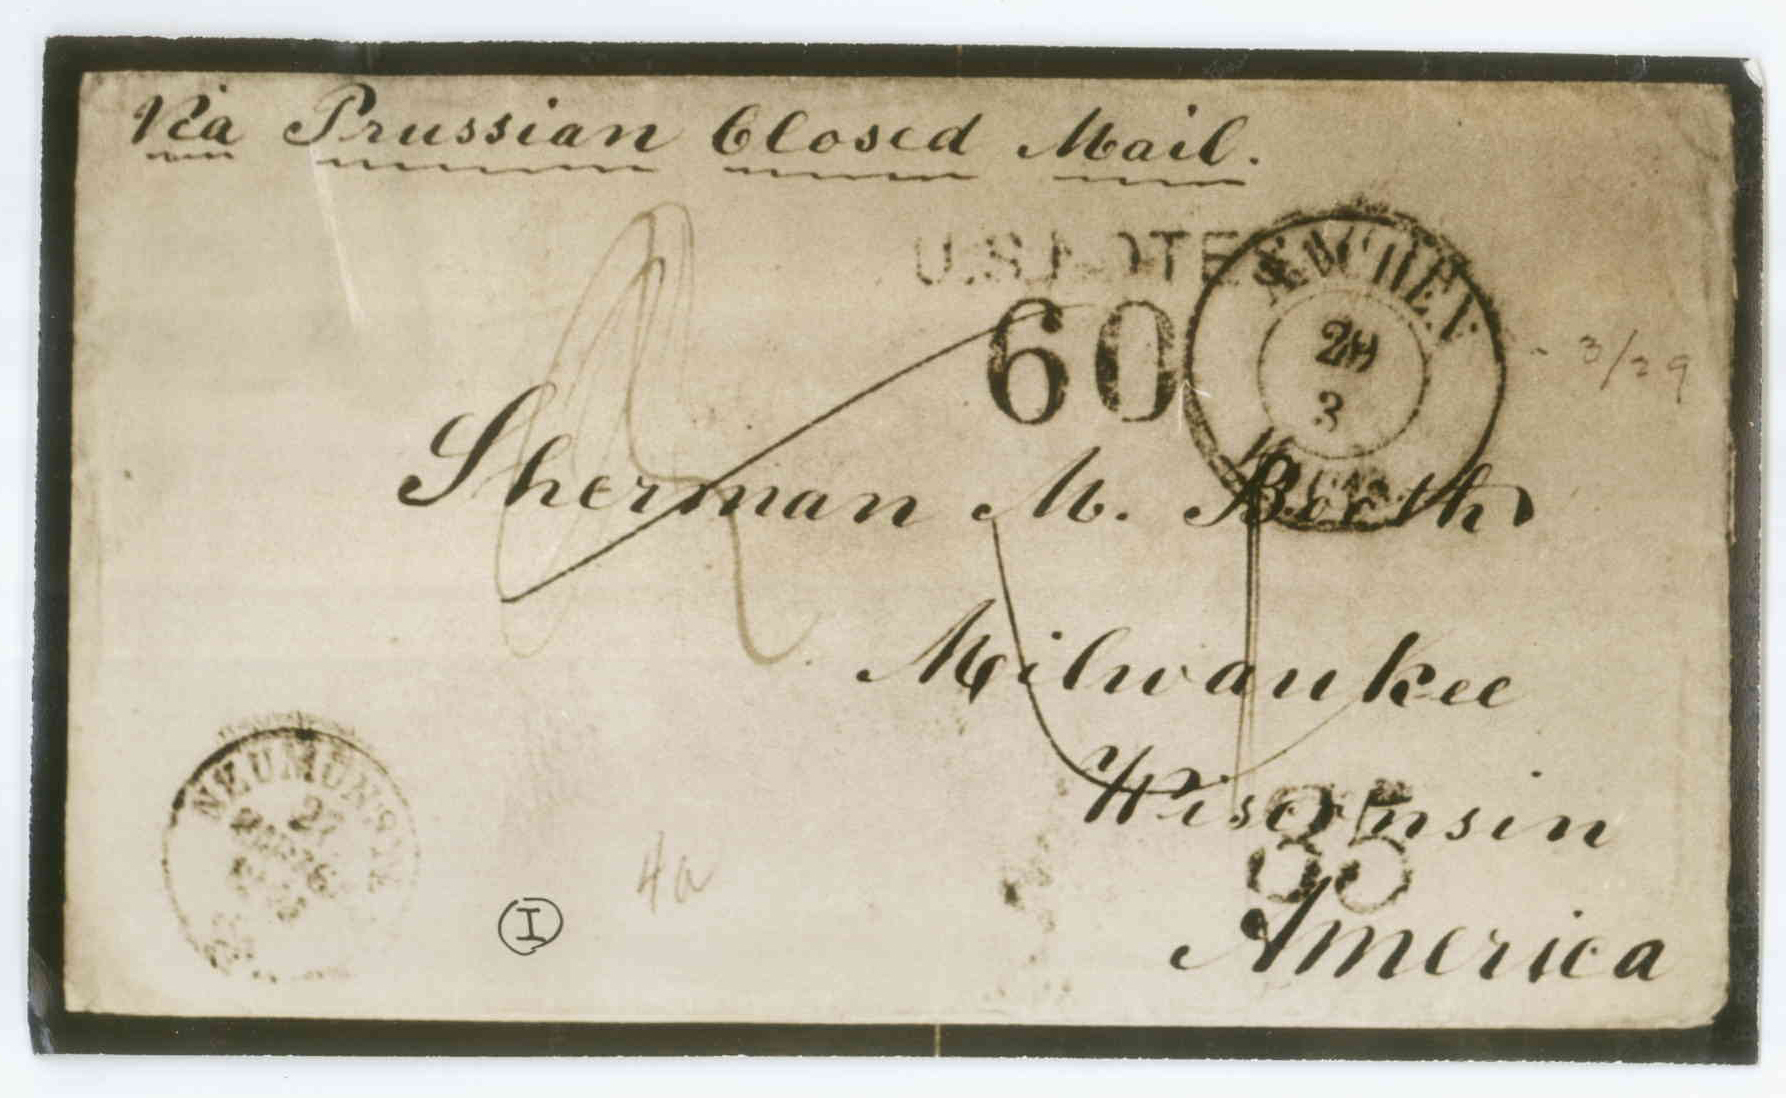 Via Prussian Closed Mail.
U.S. NOTES
60
AACHEN
29
3
3/29
Sherman M. Booth
Milwaukee
Wisconsin
35
America
NEUMÜNSTER
27
4a
I